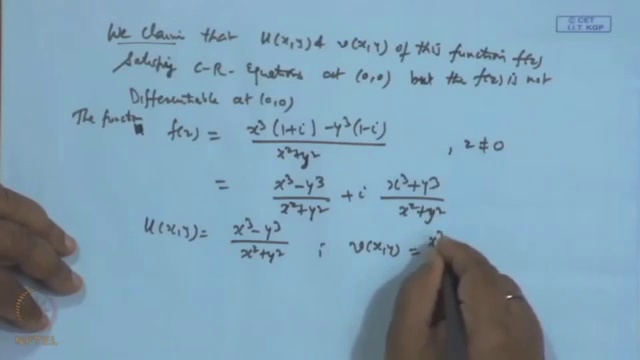 © CET
I.I.T. KGP
We Claim that u(x,y) & v(x,y) of this function f(z)
Satisfy C-R- Equations at (0,0) but the f(z) is not
Differentiable at (0,0)
The functi f(z) = x³(1+i) - y³(1-i) / x²+y² , z ≠ 0
= x³-y³ / x²+y² + i x³+y³ / x²+y²
u(x,y) = x³-y³ / x²+y² ; v(x,y) = x³
NPTEL